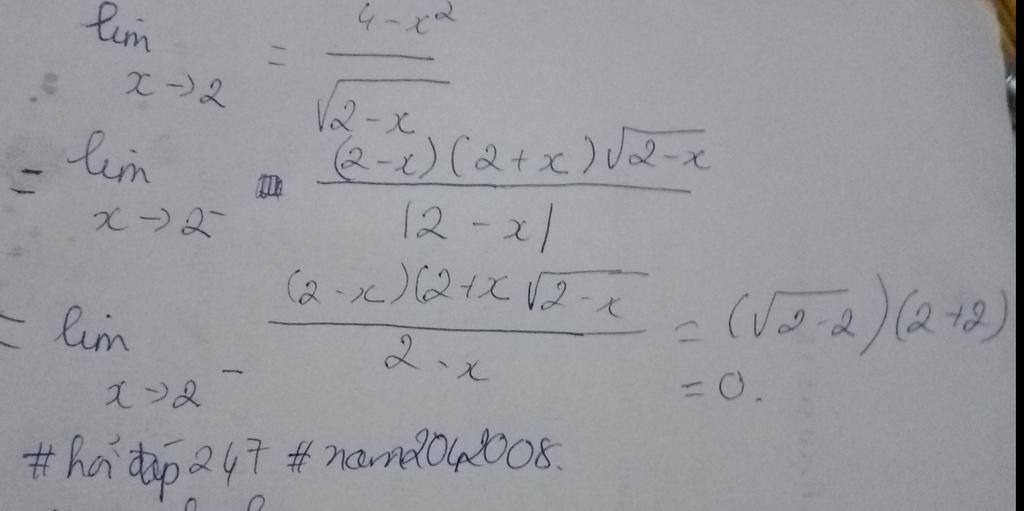 lim x→2 = 4-x² / √2-x
= lim x→2⁻ (2-x)(2+x)√2-x / |2-x|
= lim x→2⁻ (2-x)(2+x√2-x / 2-x = (√2-2)(2+2)
= 0.
#hỏi đáp 247 #nam2042008.